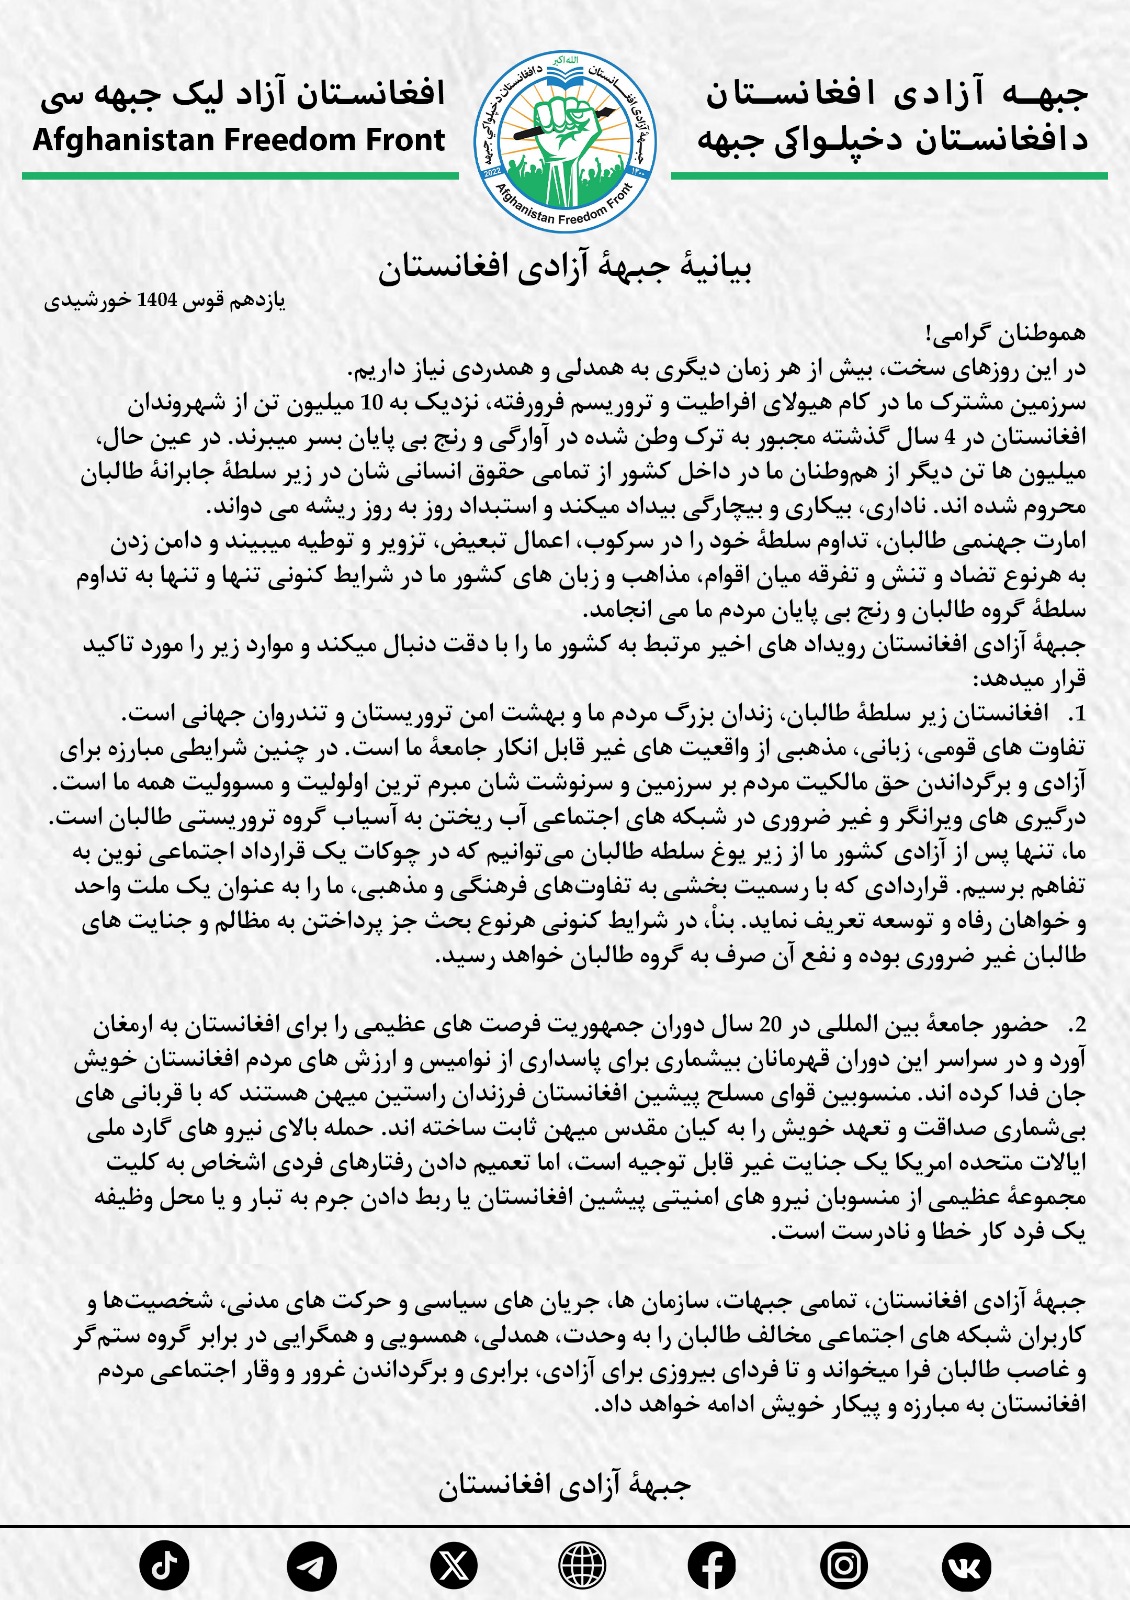 جبهه آزادی افغانستان
دافغانستان دخپلواکی جبهه
افغانستان آزاد لیک جبهه سی
Afghanistan Freedom Front
الله اکبر
د افغانستان دخپلواکی جبهه
جبهۀ آزادی افغانستان
2022
۱۴۰۰
Afghanistan Freedom Front
بیانیۀ جبهۀ آزادی افغانستان
یازدهم قوس 1404 خورشیدی
هموطنان گرامی!
در این روزهای سخت، بیش از هر زمان دیگری به همدلی و همدردی نیاز داریم.
سرزمین مشترک ما در کام هیولای افراطیت و تروریسم فرورفته، نزدیک به 10 میلیون تن از شهروندان
افغانستان در 4 سال گذشته مجبور به ترک وطن شده در آوارگی و رنج بی پایان بسر میبرند. در عین حال،
میلیون ها تن دیگر از هم‌وطنان ما در داخل کشور از تمامی حقوق انسانی شان در زیر سلطۀ جابرانۀ طالبان
محروم شده اند. ناداری، بیکاری و بیچارگی بیداد میکند و استبداد روز به روز ریشه می دواند.
امارت جهنمی طالبان، تداوم سلطۀ خود را در سرکوب، اعمال تبعیض، تزویر و توطیه میبیند و دامن زدن
به هرنوع تضاد و تنش و تفرقه میان اقوام، مذاهب و زبان های کشور ما در شرایط کنونی تنها و تنها به تداوم
سلطۀ گروه طالبان و رنج بی پایان مردم ما می انجامد.
جبهۀ آزادی افغانستان رویداد های اخیر مرتبط به کشور ما را با دقت دنبال میکند و موارد زیر را مورد تاکید
قرار میدهد:
1. افغانستان زیر سلطۀ طالبان، زندان بزرگ مردم ما و بهشت امن تروریستان و تندروان جهانی است.
تفاوت های قومی، زبانی، مذهبی از واقعیت های غیر قابل انکار جامعۀ ما است. در چنین شرایطی مبارزه برای
آزادی و برگرداندن حق مالکیت مردم بر سرزمین و سرنوشت شان مبرم ترین اولولیت و مسوولیت همه ما است.
درگیری های ویرانگر و غیر ضروری در شبکه های اجتماعی آب ریختن به آسیاب گروه تروریستی طالبان است.
ما، تنها پس از آزادی کشور ما از زیر یوغ سلطه طالبان می‌توانیم که در چوکات یک قرارداد اجتماعی نوین به
تفاهم برسیم. قراردادی که با رسمیت بخشی به تفاوت‌های فرهنگی و مذهبی، ما را به عنوان یک ملت واحد
و خواهان رفاه و توسعه تعریف نماید. بناً، در شرایط کنونی هرنوع بحث جز پرداختن به مظالم و جنایت های
طالبان غیر ضروری بوده و نفع آن صرف به گروه طالبان خواهد رسید.
2. حضور جامعۀ بین المللی در 20 سال دوران جمهوریت فرصت های عظیمی را برای افغانستان به ارمغان
آورد و در سراسر این دوران قهرمانان بیشماری برای پاسداری از نوامیس و ارزش های مردم افغانستان خویش
جان فدا کرده اند. منسوبین قوای مسلح پیشین افغانستان فرزندان راستین میهن هستند که با قربانی های
بی‌شماری صداقت و تعهد خویش را به کیان مقدس میهن ثابت ساخته اند. حمله بالای نیرو های گارد ملی
ایالات متحده امریکا یک جنایت غیر قابل توجیه است، اما تعمیم دادن رفتارهای فردی اشخاص به کلیت
مجموعۀ عظیمی از منسوبان نیرو های امنیتی پیشین افغانستان یا ربط دادن جرم به تبار و یا محل وظیفه
یک فرد کار خطا و نادرست است.
جبهۀ آزادی افغانستان، تمامی جبهات، سازمان ها، جریان های سیاسی و حرکت های مدنی، شخصیت‌ها و
کاربران شبکه های اجتماعی مخالف طالبان را به وحدت، همدلی، همسویی و همگرایی در برابر گروه ستم‌گر
و غاصب طالبان فرا میخواند و تا فردای بیروزی برای آزادی، برابری و برگرداندن غرور و وقار اجتماعی مردم
افغانستان به مبارزه و پیکار خویش ادامه خواهد داد.
جبهۀ آزادی افغانستان